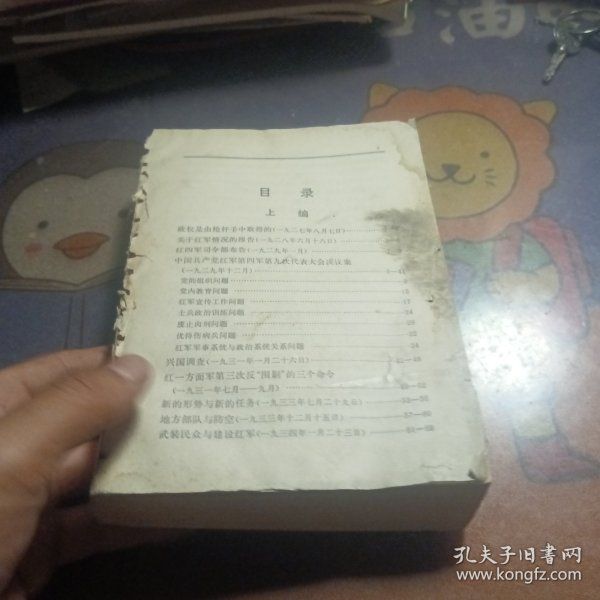 油
目录
上编
政权是由枪杆子中取得的(一九二七年八月七日)
关于红军情况的报告(一九二八年六月十六日)
红四军司令部布告(一九二九年一月)
中国共产党红军第四军第九次代表大会决议案
(一九二九年十二月)
党的组织问题
党内教育问题
红军宣传工作问题 17
士兵政治训练问题 24
废止肉刑问题
优待伤病兵问题
红军军事系统与政治系统关系问题
兴国调查(一九三一年一月二十六日)
红一方面军第三次反“围剿”的三个命令
(一九三一年七月—九月)
新的形势与新的任务(一九三三年七月二十九日)
地方部队与防空(一九三三年十二月十五日)
武装民众与建设红军(一九三四年一月二十三日)
孔夫子旧书网
www.kongfz.com